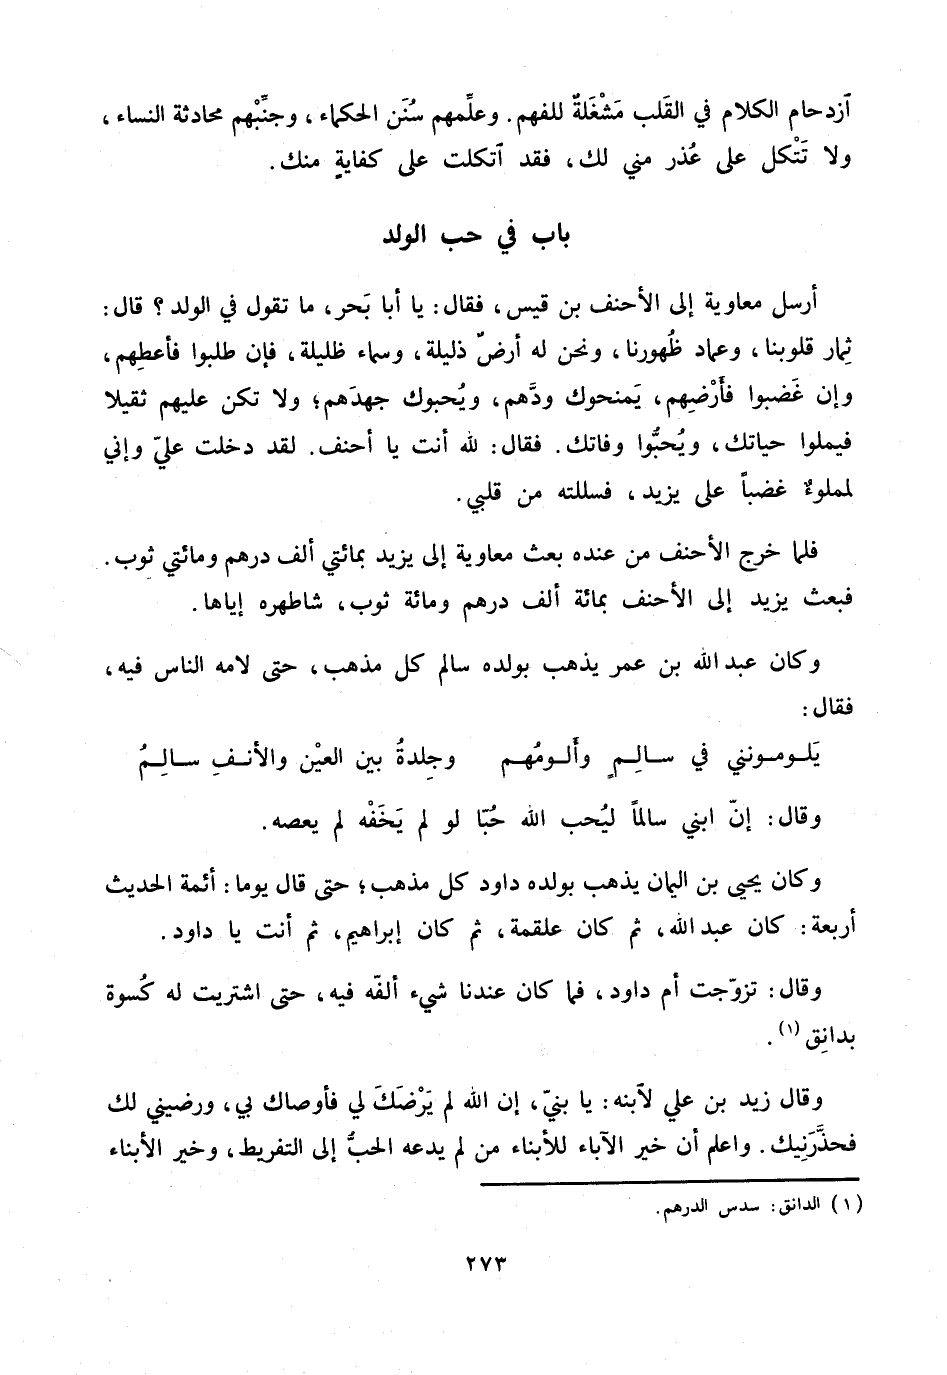 آزدحام الكلام في القَلب مَشْغَلةٌ للفهم. وعلِّمهم سُنَن الحكماء، وجنِّبْهم محادثة النساء،
ولا تَتْكل على عُذر مني لك، فقد آتكلت على كفايةٍ منك.
باب في حب الولد
أرسل معاوية إلى الأحنف بن قيس، فقال: يا أبا بَحر، ما تقول في الولد؟ قال:
ثِمار قلوبنا، وعماد ظُهورنا، ونحن له أرضٌ ذليلة، وسماء ظليلة، فإن طلبوا فأعطِهم،
وإن غَضبوا فأَرْضِهم، يَمنحوك ودَّهم، ويُحبوك جهدَهم؛ ولا تكن عليهم ثقيلا
فيملوا حياتك، ويُحبُّوا وفاتك. فقال: لله أنت يا أحنف. لقد دخلت عليّ وإني
لمملوءٌ غضباً على يزيد، فسللته من قلبي.
فلما خرج الأحنف من عنده بعث معاوية إلى يزيد بمائتي ألف درهم ومائتي ثوب.
فبعث يزيد إلى الأحنف بمائة ألف درهم ومائة ثوب، شاطهره إياها.
وكان عبد الله بن عمر يذهب بولده سالم كل مذهب، حتى لامه الناس فيه،
فقال:
يَلـومـونني في سـالِـمٍ وأَلـومُهـم وجِلدةُ بين العيْن والأنـفِ سـالِـمُ
وقال: إنّ ابني سالماً ليُحب الله حُبّا لو لم يَخَفْه لم يعصه.
وكان يحيى بن اليمان يذهب بولده داود كل مذهب؛ حتى قال يوما: أئمة الحديث
أربعة: كان عبد الله، ثم كان علقمة، ثم كان إبراهيم، ثم أنت يا داود.
وقال: تزوّجت أم داود، فما كان عندنا شيء ألفّه فيه، حتى اشتريت له كُسوة
بدانِق(١).
وقال زيد بن علي لآبنه: يا بنيّ، إن الله لم يَرْضَكَ لي فأوصاك بي، ورضيني لك
فحذَّرَنِيك. واعلم أن خير الآباء للأبناء من لم يدعه الحبُّ إلى التفريط، وخير الأبناء
(١) الدانق: سدس الدرهم.
٢٧٣